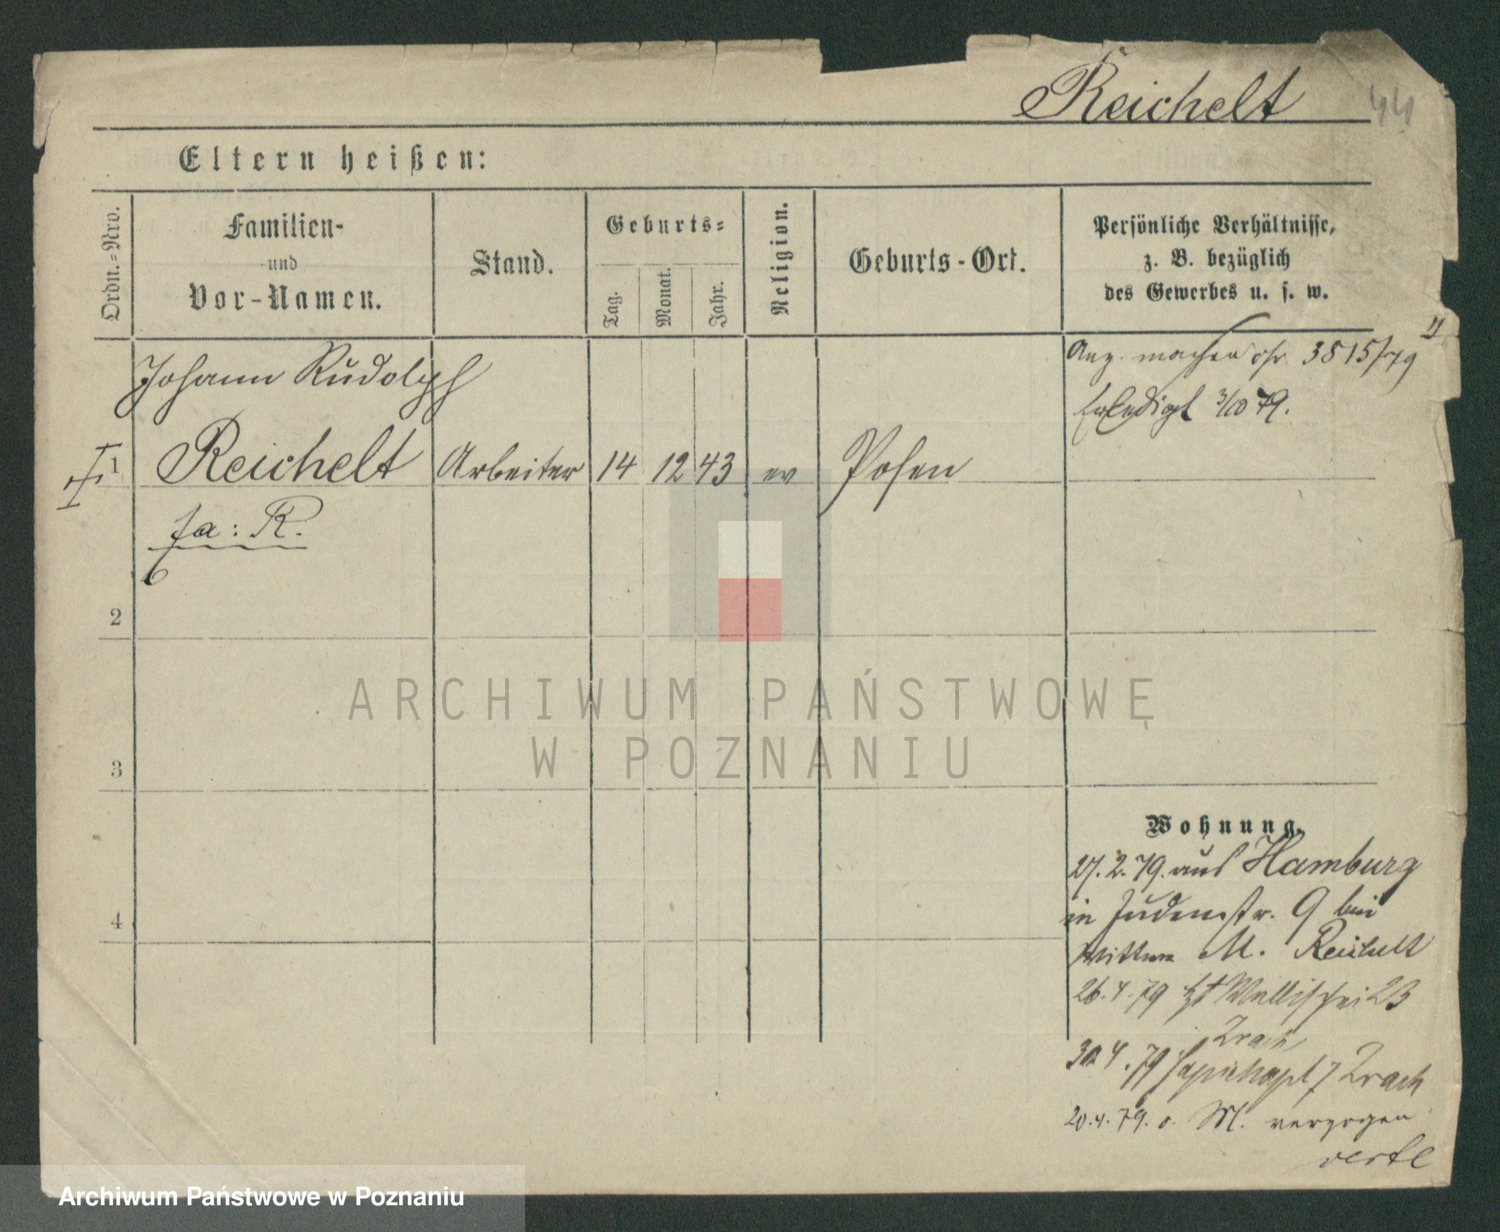 Reichelt 44
Eltern heißen:
Ordn.-Nro.
Familien-
und
Vor-Namen.
Stand.
Geburts-
Tag.
Monat.
Jahr.
Religion.
Geburts-Ort.
Persönliche Verhältnisse,
z. B. bezüglich
des Gewerbes u. s. w.
Johann Rudolph
1 Reichelt Arbeiter 14 12 43 ev Posen
fa: R.
Anz. machen 3515/79
Erledigt 3/10 79.
2
3
4
ARCHIWUM PAŃSTWOWE
W POZNANIU
Wohnung.
27.2.79. aus Hamburg
in Judenstr. 9 bei
Wittwe M. Reichelt
26.4.79 Wallischei 23
Zrach
30.4.79 7 Zrach
20.4.79. o. M. verzogen
Archiwum Państwowe w Poznaniu